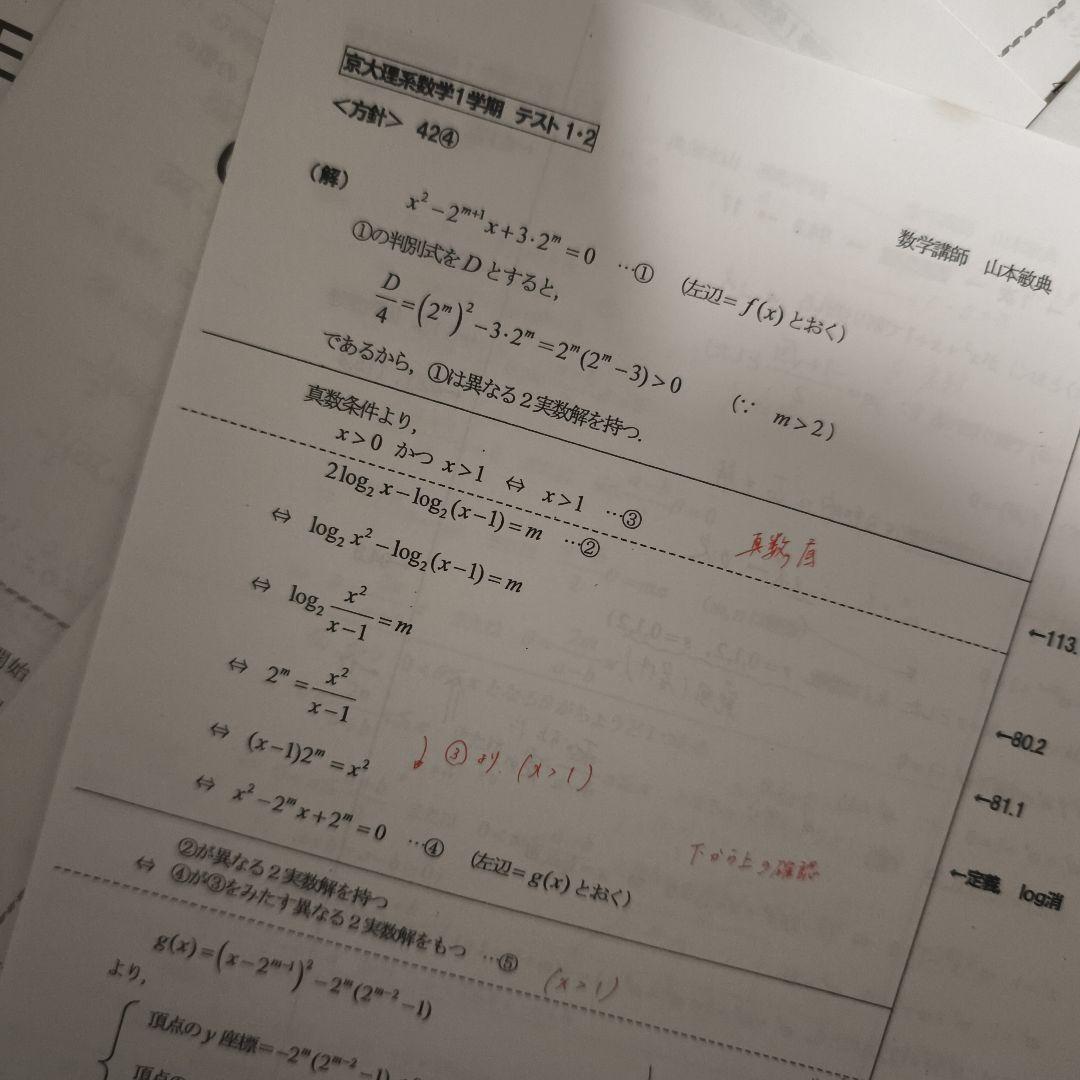 京大理系数学1学期 テスト1・2
<方針> 42④
数学講師 山本敏典
(解)
x²−2^{m+1}x+3·2^m=0 …① (左辺=f(x)とおく)
①の判別式をDとすると,
D/4=(2^m)²−3·2^m=2^m(2^m−3)>0 (∵ m>2)
であるから, ①は異なる2実数解を持つ.
真数条件より,
x>0 かつ x>1 ⇔ x>1 …③
真数, 底
←113.
2log₂x−log₂(x−1)=m …②
⇔ log₂x²−log₂(x−1)=m
←80.2
⇔ log₂ x²/(x−1)=m
←81.1
⇔ 2^m=x²/(x−1)
←定義 log消
⇔ (x−1)2^m=x²
③より. (x>1)
⇔ x²−2^m x+2^m=0 …④ (左辺=g(x)とおく)
下から上の確認
②が異なる2実数解を持つ
⇔ ④が③をみたす異なる2実数解をもつ …⑤
(x>1)
g(x)=(x−2^{m−1})²−2^m(2^{m−2}−1)
より,
頂点のy座標=−2^m(2^{m−2}−1)
頂点の
開始